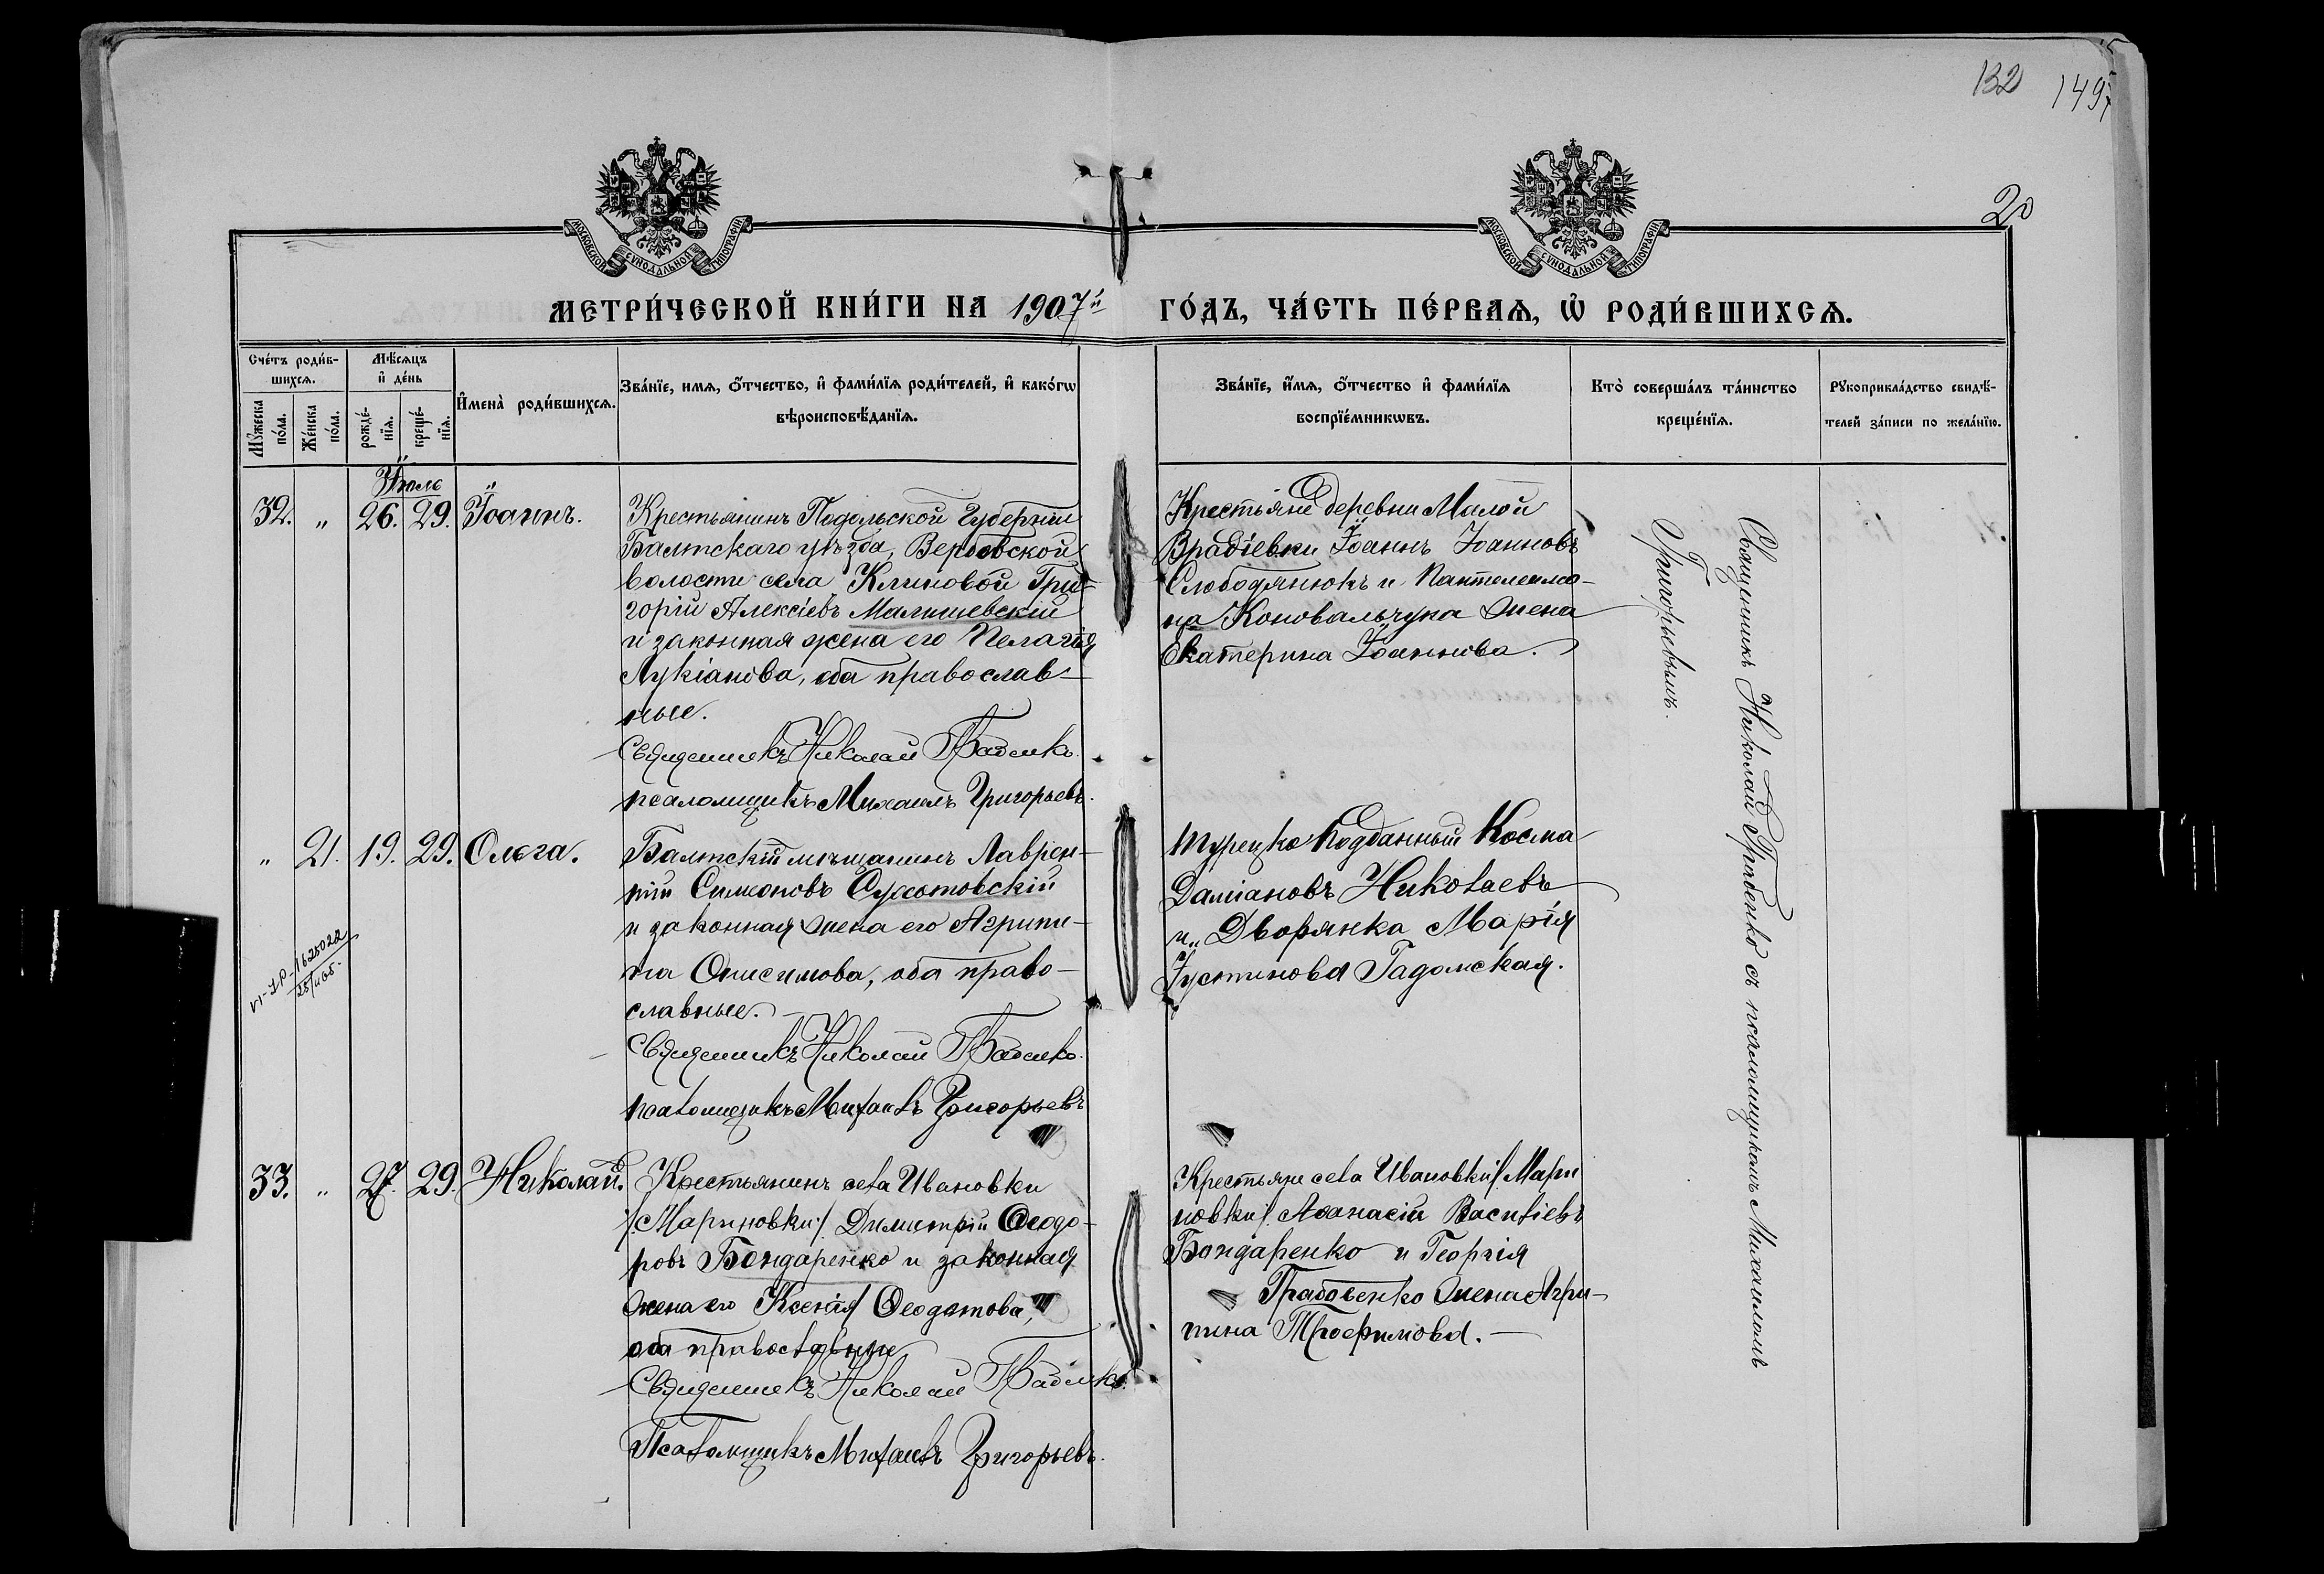 132 149
20
МОСКОВСКОЙ СѴНОДАЛЬНОЙ ТИПОГРАФІИ
МОСКОВСКОЙ СѴНОДАЛЬНОЙ ТИПОГРАФІИ
МЕТРИ́ЧЕСКОЙ КНИ́ГИ НА 1907й ГО́ДЪ, ЧА́СТЬ ПЕ́РВАѦ, Ѡ҆ РОДИ́ВШИХСѦ.
Сче́тъ роди́в-
шихсѧ.
Мꙋ́жеска по́ла.
Же́нска по́ла.
Мѣ́сѧцъ
и҆ де́нь
рожде́-
нїѧ.
креще́-
нїѧ.
И҆мена̀ роди́вшихсѧ.
Зва́нїе, имѧ, ѻ҆́тчество, и҆ фами́лїѧ роди́телей, и҆ како́гѡ
вѣроисповѣ́данїѧ.
Зва́нїе, и҆́мѧ, ѻ҆́тчество и҆ фами́лїѧ
воспрїе́мникѡвъ.
Кто̀ соверша́лъ та́инство
креще́нїѧ.
Рꙋкоприкла́дство свидѣ́-
телей за́писи по жела́нїю.
Іюль
32. „ 26. 29. Іоаннъ.
Крестьянинъ Подольской Губерніи
Балтскаго уѣзда, Вербовской
волости села Клиновой Гри-
горій Алексіевъ Малишевскій
и законная жена его Пелагія
Лукіанова, оба православ-
ные.
Священникъ Николай
псаломщикъ Михаилъ Григорьевъ.
Крестьяне деревни Малой
Врадіевки Іоаннъ Іоанновъ
Слободянюкъ и Пантелеимо-
на Коновальчука жена
Екатерина Іоаннова.
Священникъ Николай Грабенко съ псаломщикомъ Михаиломъ
Григорьевымъ.
„ 21. 19. 29. Ольга.
VI-ЯР-1625022
25/465.
Балтскій мѣщанинъ Лаврен-
тій Симеоновъ Сухотовскій
и законная жена его Агрипи-
на Онисимова, оба право-
славные.
Священникъ Николай
псаломщикъ Михаилъ Григорьевъ
Турецко подданный Косма
Даміановъ Николаевъ
и„ Дворянка Марія
Іустинова Гадомская.
33. „ 27. 29. Николай.
Крестьянинъ села Ивановки
/:Мариновки:/ Димитрій Ѳеодо-
ровъ Бондаренко и законная
жена его Ксенія Ѳеодотова,
оба православные
Священникъ Николай
Псаломщикъ Михаилъ Григорьевъ.
Крестьяне села Ивановки /:Мари
новки/ Аѳанасій Василіевъ
Бондаренко и Георгія
Грабовенко жена Агри-
пина Трофимова.